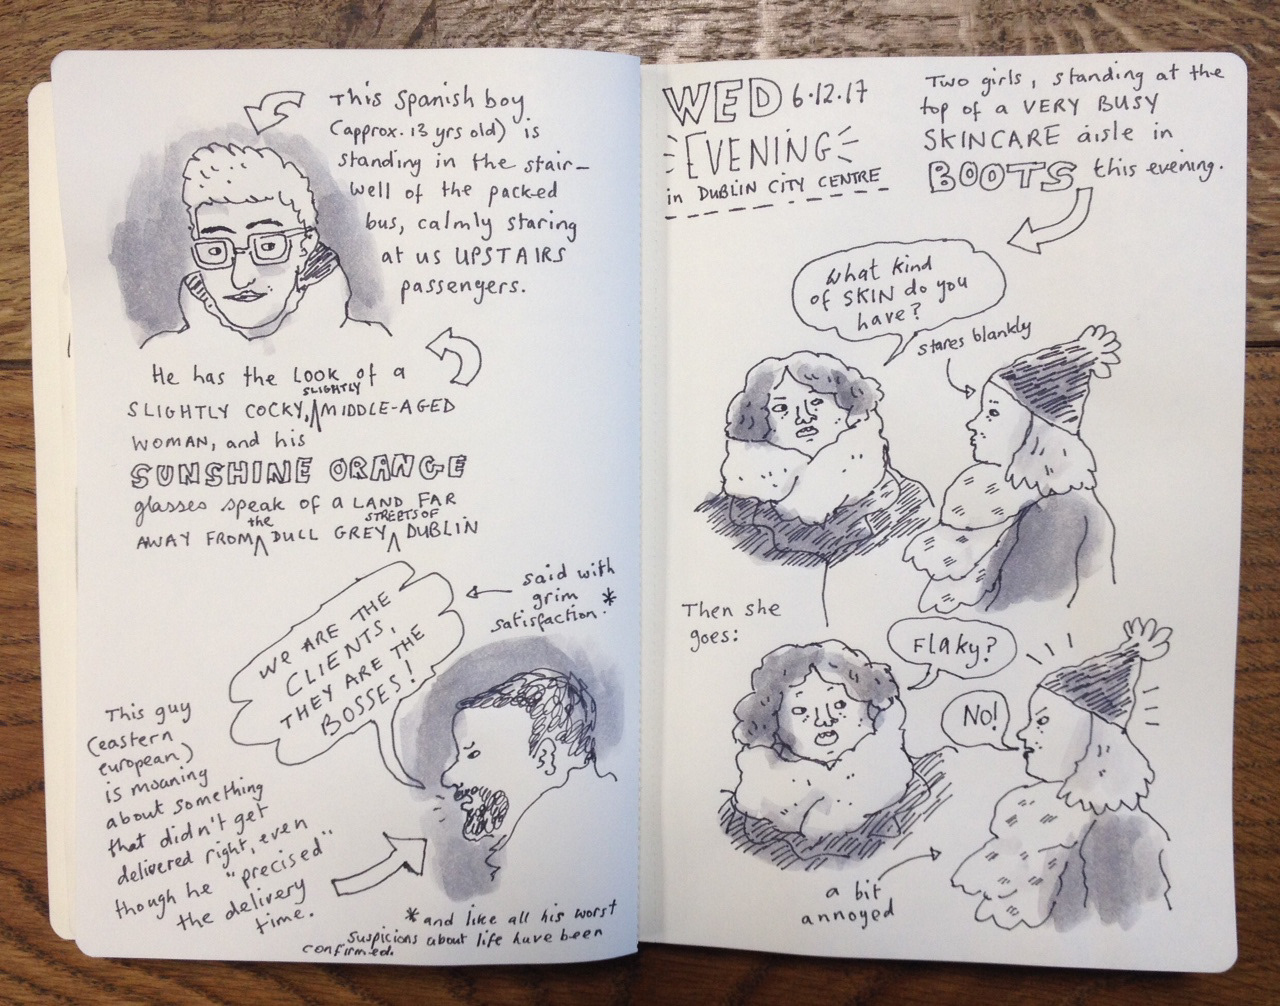 This Spanish boy
(approx. 13 yrs old) is
standing in the stair-
well of the packed
bus, calmly staring
at us UPSTAIRS
passengers.
He has the LOOK of a
SLIGHTLY
SLIGHTLY COCKY, MIDDLE-AGED
WOMAN, and his
SUNSHINE ORANGE
glasses speak of a LAND FAR
the STREETS OF
AWAY FROM DULL GREY DUBLIN
WE ARE THE
CLIENTS,
THEY ARE THE
BOSSES!
said with
grim
satisfaction.*
This guy
(eastern
european)
is moaning
about something
that didn't get
delivered right, even
though he "precised"
the delivery
time.
*and like all his worst
suspicions about life have been
confirmed.
WED 6.12.17
EVENING
in DUBLIN CITY CENTRE
Two girls, standing at the
top of a VERY BUSY
SKINCARE aisle in
BOOTS this evening.
What kind
of SKIN do you
have?
stares blankly
Then she
goes:
Flaky?
No!
a bit
annoyed